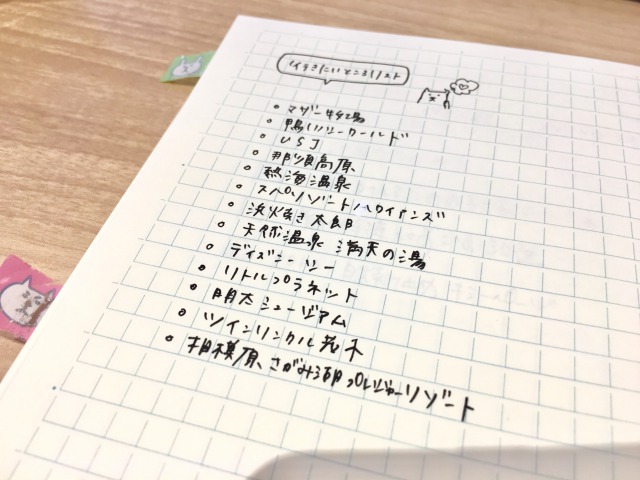 行きたいところリスト
・マザー牧場
・鴨川シーワールド
・USJ
・那須高原
・熱海温泉
・スパリゾートハワイアンズ
・浜焼き太郎
・天然温泉 満天の湯
・ディズニーシー
・リトルプラネット
・明太ミュージアム
・ツインリンクル茂木
・相模原 さがみ湖プレジャーリゾート